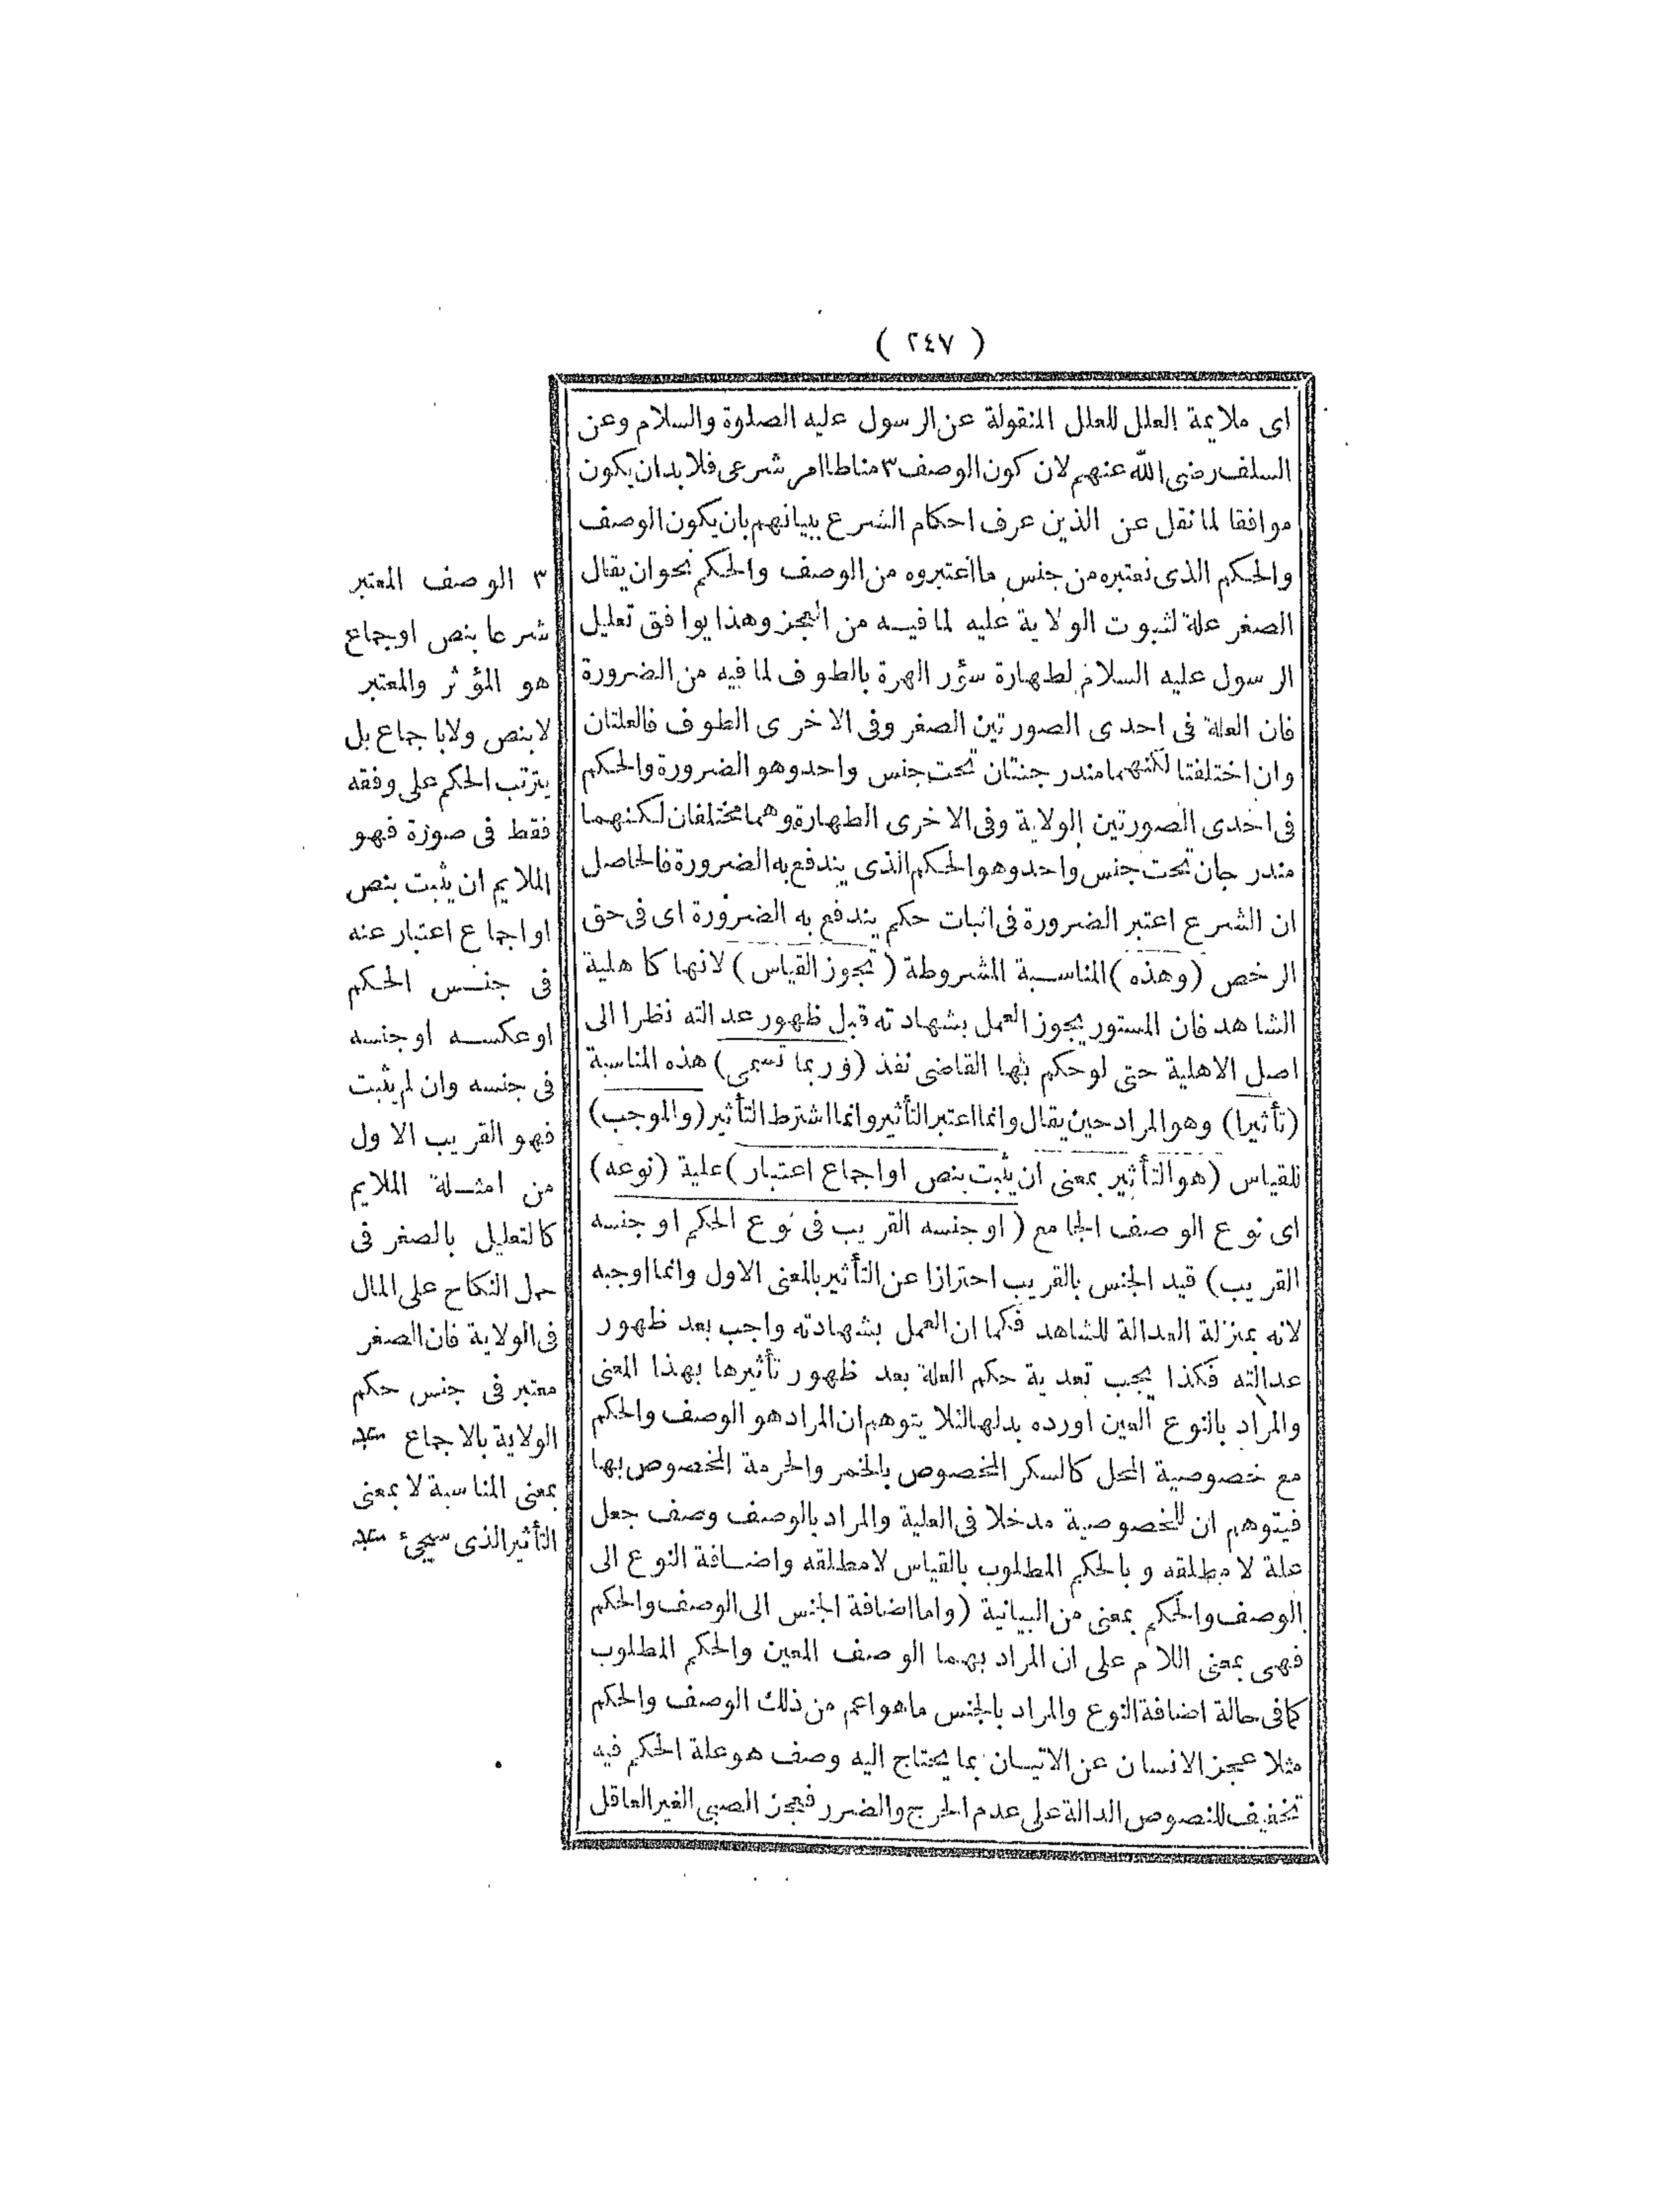 ( ٢٤٧ )
اى ملايمة العلل للعلل المنقولة عن الرسول عليه الصلوة والسلام وعن
السلف رضى الله عنهم لان كون الوصف ٣ مناطا امر شرعى فلا بد ان يكون
موافقا لما نقل عن الذين عرف احكام الشرع ببيانهم بان يكون الوصف
والحكم الذى نعتبره من جنس ما اعتبروه من الوصف والحكم نحو ان يقال
الصغر علة لثبوت الولاية عليه لما فيه من العجز وهذا يوافق تعليل
الرسول عليه السلام لطهارة سؤر الهرة بالطوف لما فيه من الضرورة
فان العلة فى احدى الصورتين الصغر وفى الاخرى الطوف فالعلتان
وان اختلفتا لكنهما مندرجتان تحت جنس واحد وهو الضرورة والحكم
فى احدى الصورتين الولاية وفى الاخرى الطهارة وهما مختلفان لكنهما
مندرجان تحت جنس واحد وهو الحكم الذى يندفع به الضرورة فالحاصل
ان الشرع اعتبر الضرورة فى اثبات حكم يندفع به الضرورة اى فى حق
الرخص (وهذه) المناسبة المشروطة (تجوز القياس) لانها كاهلية
الشاهد فان المستور يجوز العمل بشهادته قبل ظهور عدالته نظرا الى
اصل الاهلية حتى لو حكم بها القاضى نفذ (وربما تسمى) هذه المناسبة
(تأثيرا) وهو المراد حين يقال وانما اعتبر التأثير وانما اشترط التأثير (والموجب)
للقياس (هو التأثير بمعنى ان يثبت بنص او اجماع اعتبار) علية (نوعه)
اى نوع الوصف الجامع (او جنسه القريب فى نوع الحكم او جنسه
القريب) قيد الجنس بالقريب احترازا عن التأثير بالمعنى الاول وانما اوجبه
لانه بمنزلة العدالة للشاهد فكما ان العمل بشهادته واجب بعد ظهور
عدالته فكذا يجب تعدية حكم العلة بعد ظهور تأثيرها بهذا المعنى
والمراد بالنوع العين اورده بدلها لئلا يتوهم ان المراد هو الوصف والحكم
مع خصوصية المحل كالسكر المخصوص بالخمر والحرمة المخصوص بها
فيتوهم ان للخصوصية مدخلا فى العلية والمراد بالوصف وصف جعل
علة لا مطلقه وبالحكم المطلوب بالقياس لا مطلقه واضافة النوع الى
الوصف والحكم بمعنى من البيانية (واما اضافة الجنس الى الوصف والحكم
فهى بمعنى اللام على ان المراد بهما الوصف المعين والحكم المطلوب
كما فى حالة اضافة النوع والمراد بالجنس ما هو اعم من ذلك الوصف والحكم
مثلا عجز الانسان عن الاتيان بما يحتاج اليه وصف هو علة الحكم فيه
تخفيف للنصوص الدالة على عدم الحرج والضرر فعجز الصبى الغير العاقل
٣ الوصف المعتبر
شرعا بنص او جماع
هو المؤثر والمعتبر
لا بنص ولا باجماع بل
يترتب الحكم على وفقه
فقط فى صورة فهو
الملايم ان يثبت بنص
او اجماع اعتبار عنه
فى جنس الحكم
او عكسه او جنسه
فى جنسه وان لم يثبت
فهو القريب الاول
من امثلة الملايم
كالتعليل بالصغر فى
حمل النكاح على المال
فى الولاية فان الصغر
معتبر فى جنس حكم
الولاية بالاجماع
بمعنى المناسبة لا بمعنى
التأثير الذى سيجئ